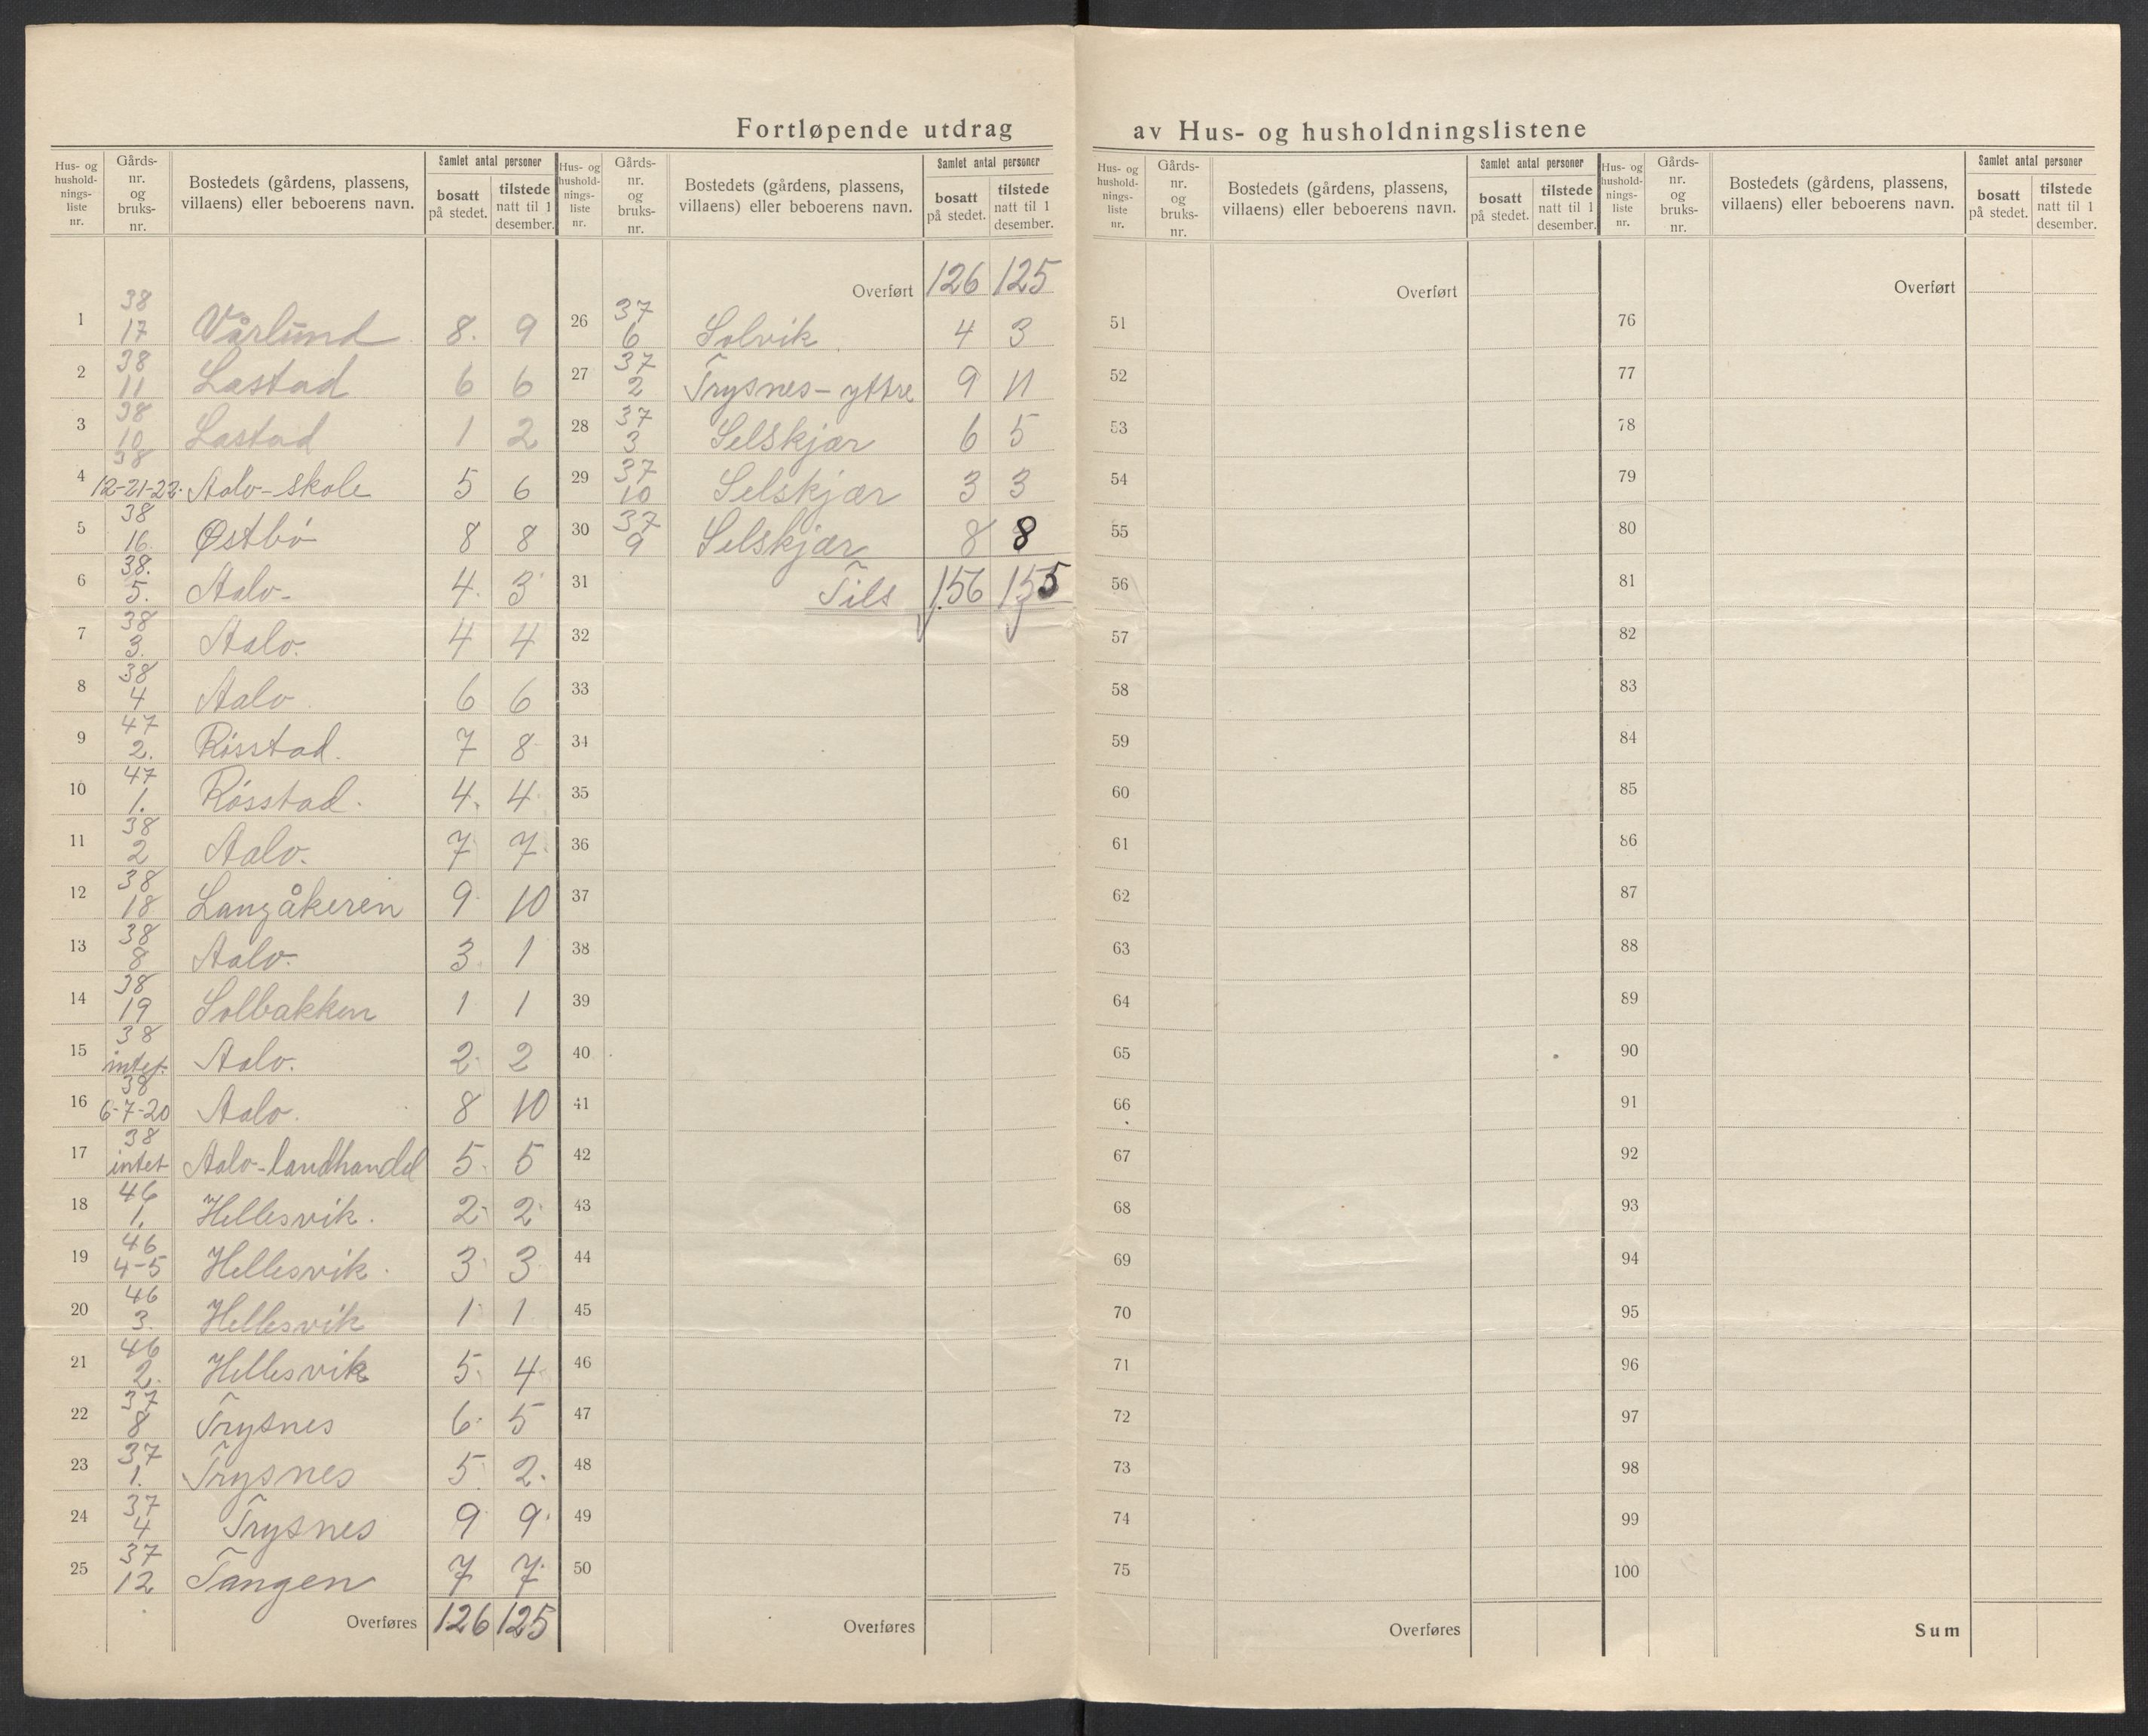 Fortløpende utdrag av Hus- og husholdningslistene
Hus- og hushold-nings-liste nr. | Gårds-nr. og bruks-nr. | Bostedets (gårdens, plassens, villaens) eller beboerens navn. | Samlet antal personer | bosatt på stedet. | tilstede natt til 1 desember.
1 | 38 17 | Vårlund | 8. | 9
2 | 38 11 | Lastad | 6 | 6
3 | 38 10 | Lastad | 1 | 2
4 | 38 12-21-22. | Aalo-skole | 5 | 6
5 | 38 16. | Østbö | 8 | 8
6 | 38. 5. | Aalo- | 4. | 3
7 | 38 3. | Aalo. | 4 | 4
8 | 38 4 | Aalo | 6 | 6
9 | 47 2. | Rösstad. | 7 | 8
10 | 47 1. | Rösstad. | 4. | 4
11 | 38 2 | Aalo. | 7 | 7
12 | 38 18 | Langåkeren | 9 | 10
13 | 38 8 | Aalo. | 3 | 1
14 | 38 19 | Solbakken | 1 | 1
15 | 38 intet. | Aalo. | 2 | 2
16 | 38 6-7-20 | Aalo. | 8 | 10
17 | 38 intet | Aalo-landhandel | 5. | 5
18 | 46 1. | Hellesvik. | 2 | 2
19 | 46 4-5 | Hellesvik. | 3 | 3
20 | 46 3. | Hellesvik | 1 | 1
21 | 46 2. | Hellesvik | 5. | 4
22 | 37 8 | Trysnes | 6. | 5
23 | 37 1. | Trysnes | 5. | 2.
24 | 37 4 | Trysnes | 9 | 9.
25 | 37 12 | Tangen | 7 | 7.
Overføres | 126 | 125
Hus- og hushold-nings-liste nr. | Gårds-nr. og bruks-nr. | Bostedets (gårdens, plassens, villaens) eller beboerens navn. | Samlet antal personer | bosatt på stedet. | tilstede natt til 1 desember.
Overført | 126 | 125
26 | 37 6 | Solvik | 4 | 3
27 | 37 2 | Trysnes-yttre | 9 | 11
28 | 37 3 | Selskjær | 6 | 5
29 | 37 10 | Selskjær | 3 | 3
30 | 37 9 | Selskjær | 8 | 8
31 | Tils | 156 | 155
32
33
34
35
36
37
38
39
40
41
42
43
44
45
46
47
48
49
50
Overføres
Hus- og hushold-nings-liste nr. | Gårds-nr. og bruks-nr. | Bostedets (gårdens, plassens, villaens) eller beboerens navn. | Samlet antal personer | bosatt på stedet. | tilstede natt til 1 desember.
Overført
51
52
53
54
55
56
57
58
59
60
61
62
63
64
65
66
67
68
69
70
71
72
73
74
75
Overføres
Hus- og hushold-nings-liste nr. | Gårds-nr. og bruks-nr. | Bostedets (gårdens, plassens, villaens) eller beboerens navn. | Samlet antal personer | bosatt på stedet. | tilstede natt til 1 desember.
Overført
76
77
78
79
80
81
82
83
84
85
86
87
88
89
90
91
92
93
94
95
96
97
98
99
100
Sum